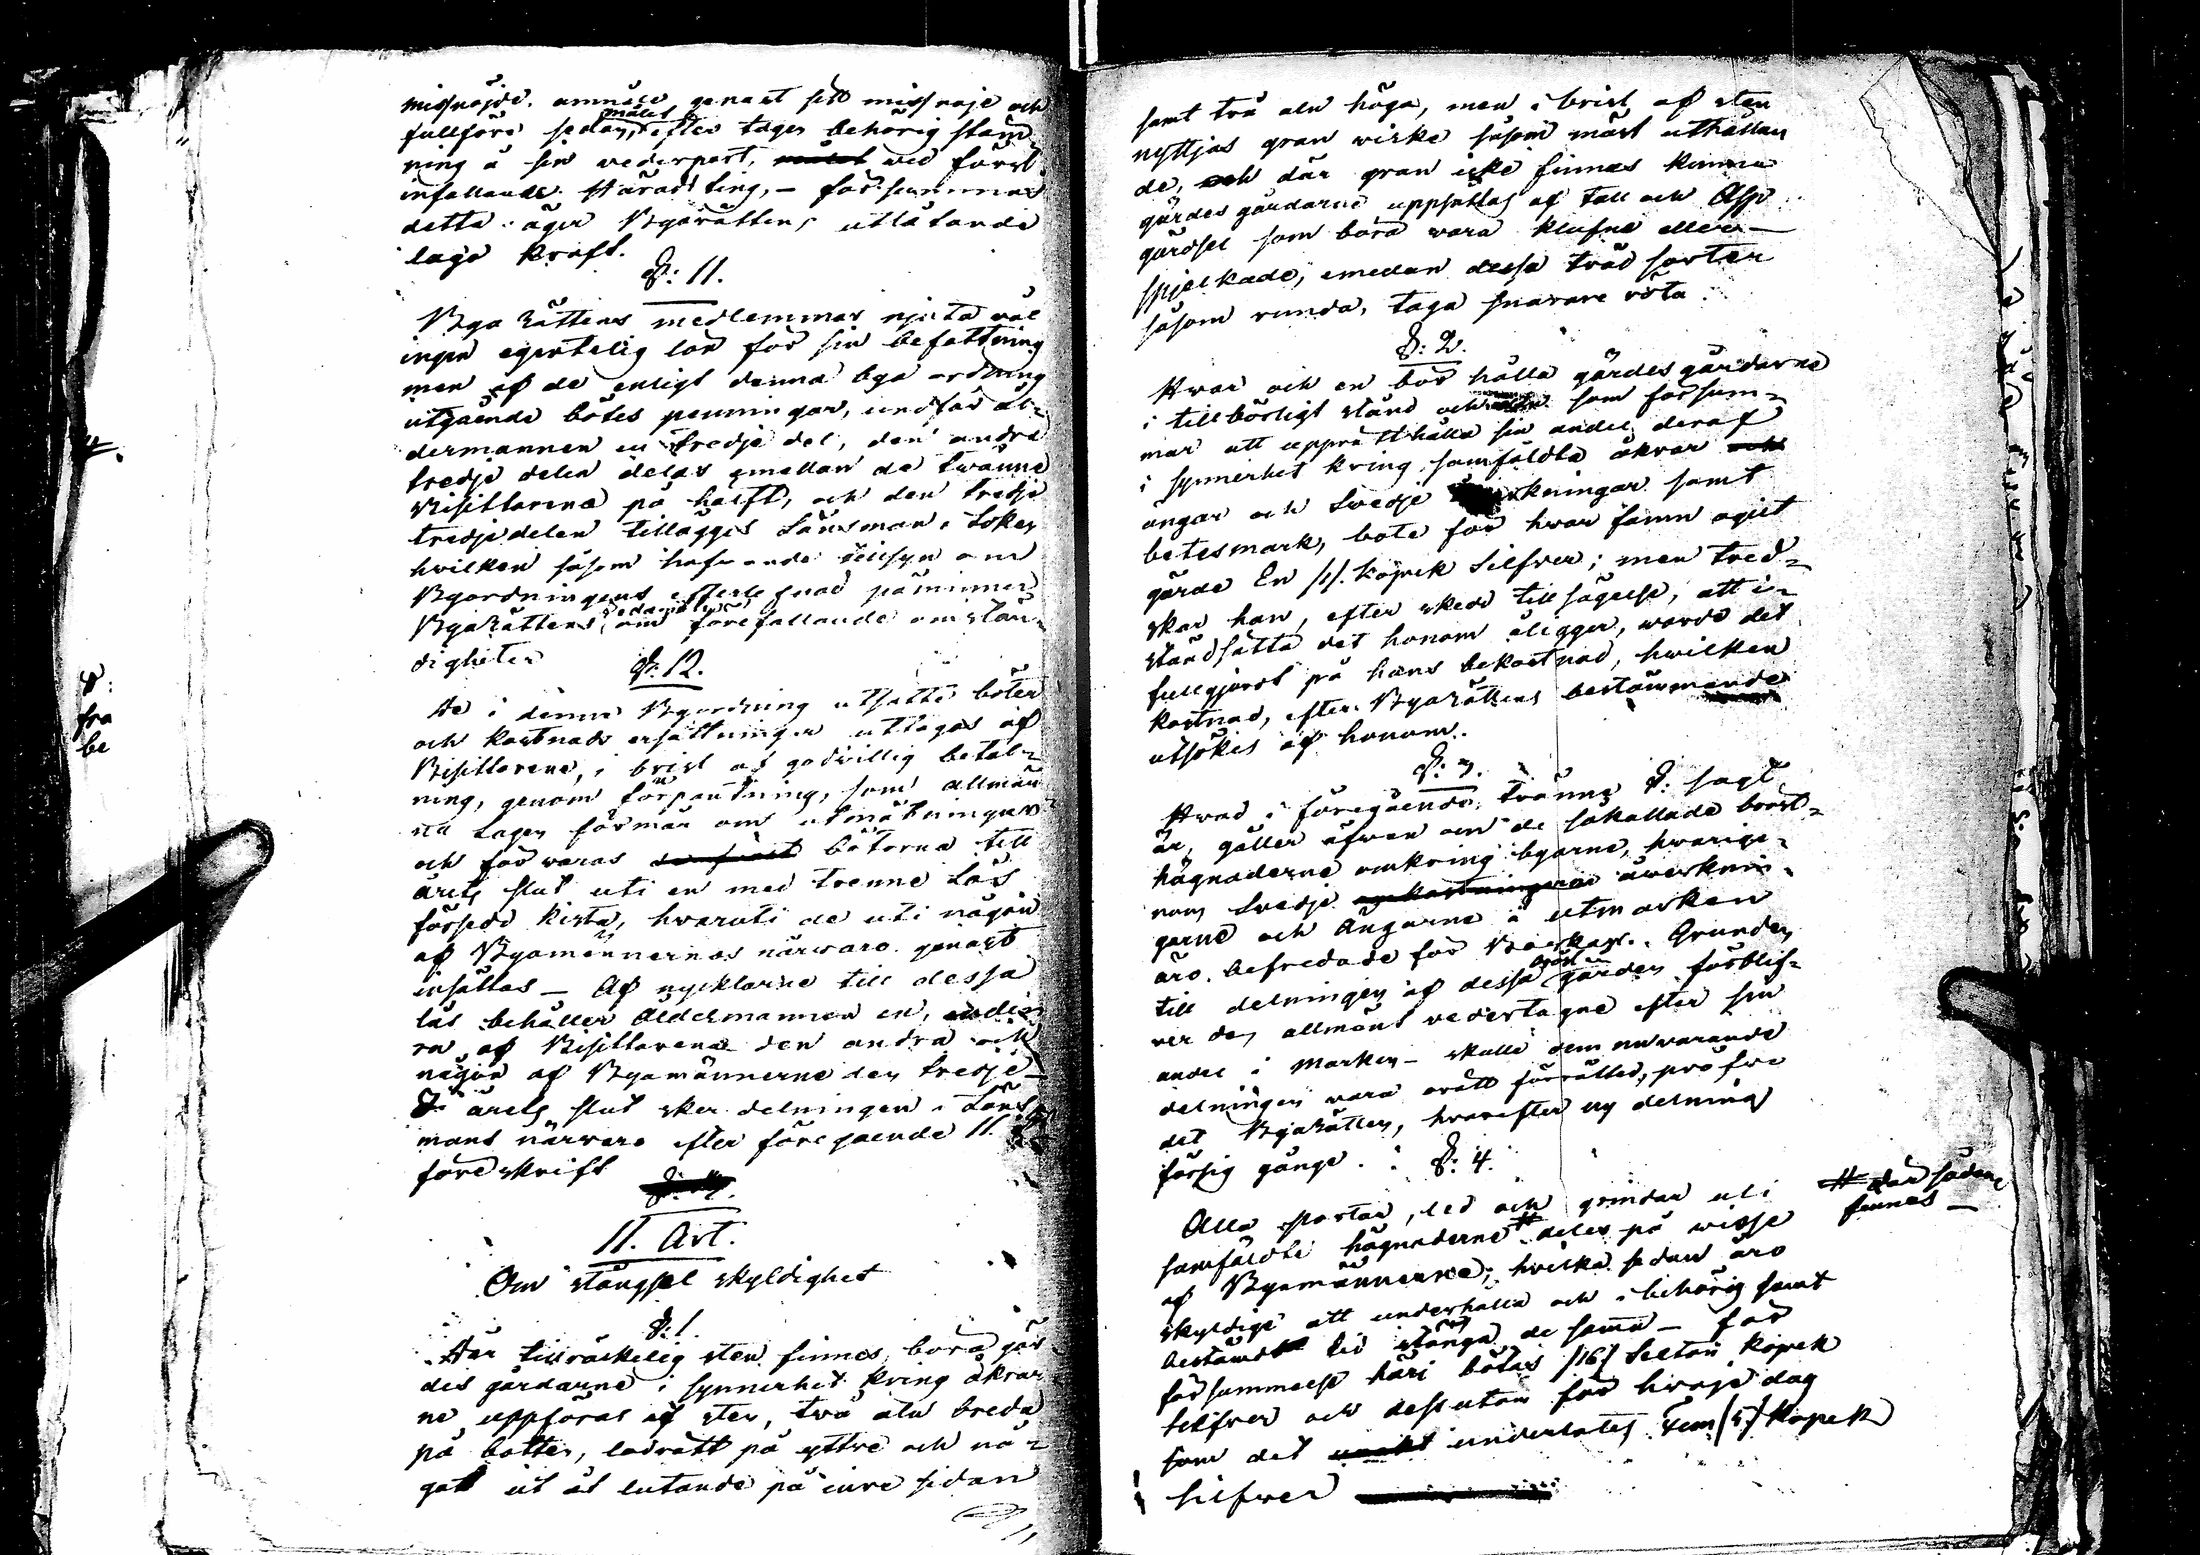 missnöjde. anmäle genast sitt missnöje och
fullföre sedan målet efter tagen behörig stäm¬
ning å sin vederpart, wid först
infallande Härads ting, – försummas
detta äger Byarättens utlåtande
laga kraft.
§: 11.
Bya Rättens medlemmar njuta väl
ingen egentelig lön för sin befattning
men af de enligt denna bya ordning
utgående bötes penningar, undfår ål¬
dermannen en tredje del, den andra
tredje delen delas emellan de twänne
Bisittarena på hälft, och den tredje
tredjedelen tillägges Länsman i Soken
hvilken såsom hafvande tillsyn om
Byordningens efterlefnad påminner
ByaRättens ledamöter om förefallande omstän¬
digheter
§: 12.
De i denna Byordning utsatte böter
och kostnads ersättningar uttagas af
Bisittarena, i brist af godvillig betal¬
ning, genom förpantning, som allmän¬
na Lagen förmår om utmätningar
och förvaras böterna till
årets slut uti en med trenne Lås
försedd kista, hvaruti de uti någon
af Byamännernas närvaro genast
insättas – Af nycklarne till dessa
lås behåller Åldermannen en, endera
af Bisittarena den andra och
någon af Byamännerne den tredje –
I årets slut sker delningen i Läns¬
mans närvaro efter föregående 11. §:
föreskrift
11. Art.
Om stängsel skyldighet
§: 1.
Där tillräckelig sten finnes, böra gär¬
des gårdarne i synnerhet kring åkrar
ne uppföras af sten, två aln breda
på botten, lodrätt på yttre och nå¬
got ut åt lutande på inre sidan
samt två aln höga, men i brist af sten
nyttjas gran wirke såsom mäst uthållan
de, och där gran icke finnes kunna
gärdes gårdarne uppsättas af tall och Asp
gärdsel som böra vara klufne eller –
spjelkade, emedan dessa träd sorter
såsom runda, taga snarare röta
§: 2.
Hvar och en bör hålla gärdes gårdarne
i tillbörligt stånd och som försum¬
mar att upprätthålla sin andel deraf
i synnerhet kring samfäldta åkrar
ängar och Svedje samt
betesmark, böte för hvar famn ogilt
gärde En /1/. kopek Silfver; men tred¬
skar han, efter skedd tillsägelse, att i¬
ståndsätta det honom åligger, warde det
fullgjordt på hans bekostnad, hwilken
kostnad, efter ByaRättens bestämmande
utsökes af honom.
§: 3.
Hvad i föregående tvänne §: sagt
är, gäller äfwen om de såkallade bräst¬
hägnaderne omkring byarne, hvarige¬
nom Svedje awerknin¬
garne och Ängarne å utmarken
äro befredade för Boskap. Grunden
till delningen af dessa gärden förblif¬
ver den allmänt vedertagne efter sin
andel i marken – skulle dem nuvarande
delningen vara orätt förrättad, pröfve
det ByaRätten, hvarefter ny delning
försig gånge.
§: 4.
Alla portar, led och grindar uti
samfäldte hägnaderne # deles på wisse
af Byamännerne, hvilka sedan äro
skyldige att underhålla och i behörig samt
bestämdt tid stänga de samma – för
försummelse häri bötas /16/ Sexton kopek
silfver och dessutom för hvarje dag
som det underlåtes Fem /5/ Kopek
silfver
# där sådan
finnes –
§:
fra
be